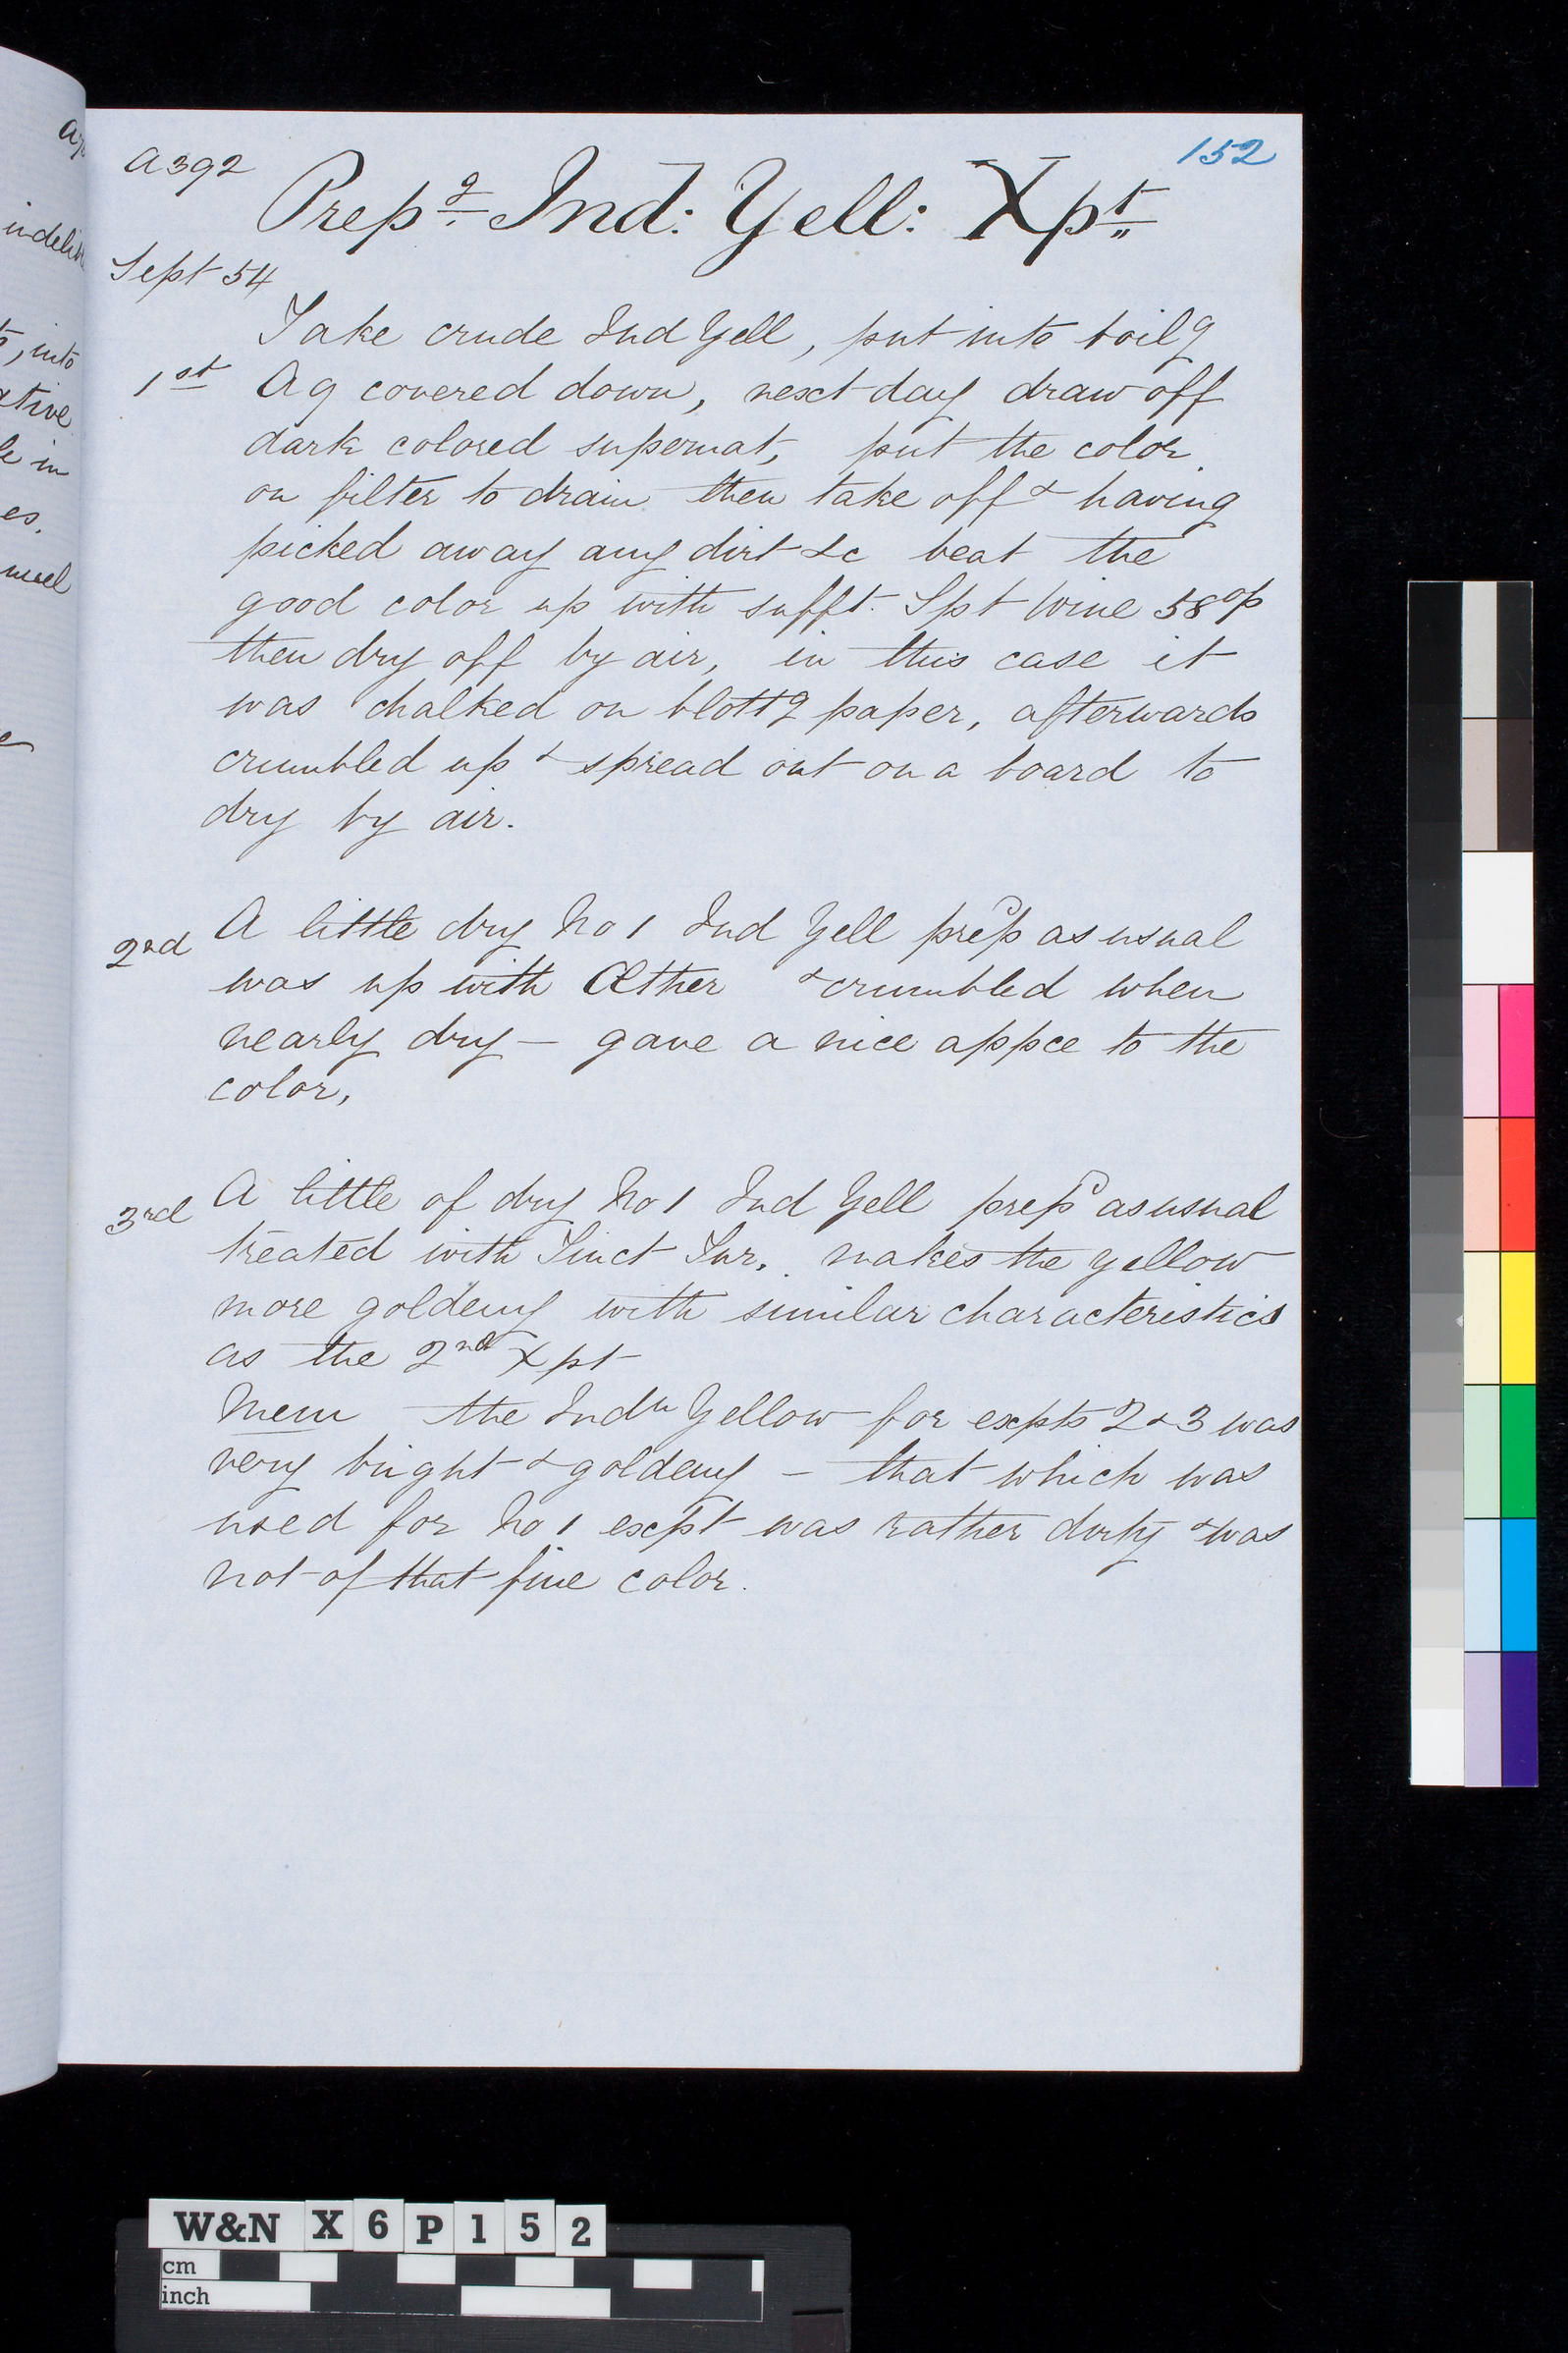 152
A392
Prepg Ind: Yell: Xpt
Sept 54
Take crude Ind Yell, put into boilg
1st Aq covered down, next day draw off
dark colored supernat, put the color
on filter to drain then take off & having
picked away any dirt &c beat the
good color up with sufft. Spt Wine 58 op
then dry off by air, in this case it
was chalked on blottg paper, afterwards
crumbled up & spread out on a board to
dry by air.
2nd A little dry No 1 Ind Yell prepd as usual
was up with Æther & crumbled when
nearly dry – gave a nice appce to the
color,
3rd A little of dry No 1 Ind Yell prepd as usual
treated with Tinct Tur. makes the yellow
more goldeny with similar characteristics
as the 2nd Xpt
Mem the Indn Yellow for expts 2 & 3 was
very bright & goldeny – that which was
used for No 1 expt was rather dirty & was
not of that fine color.
indelib
, into
ative
le in
es.
W&N X6P152
cm
inch